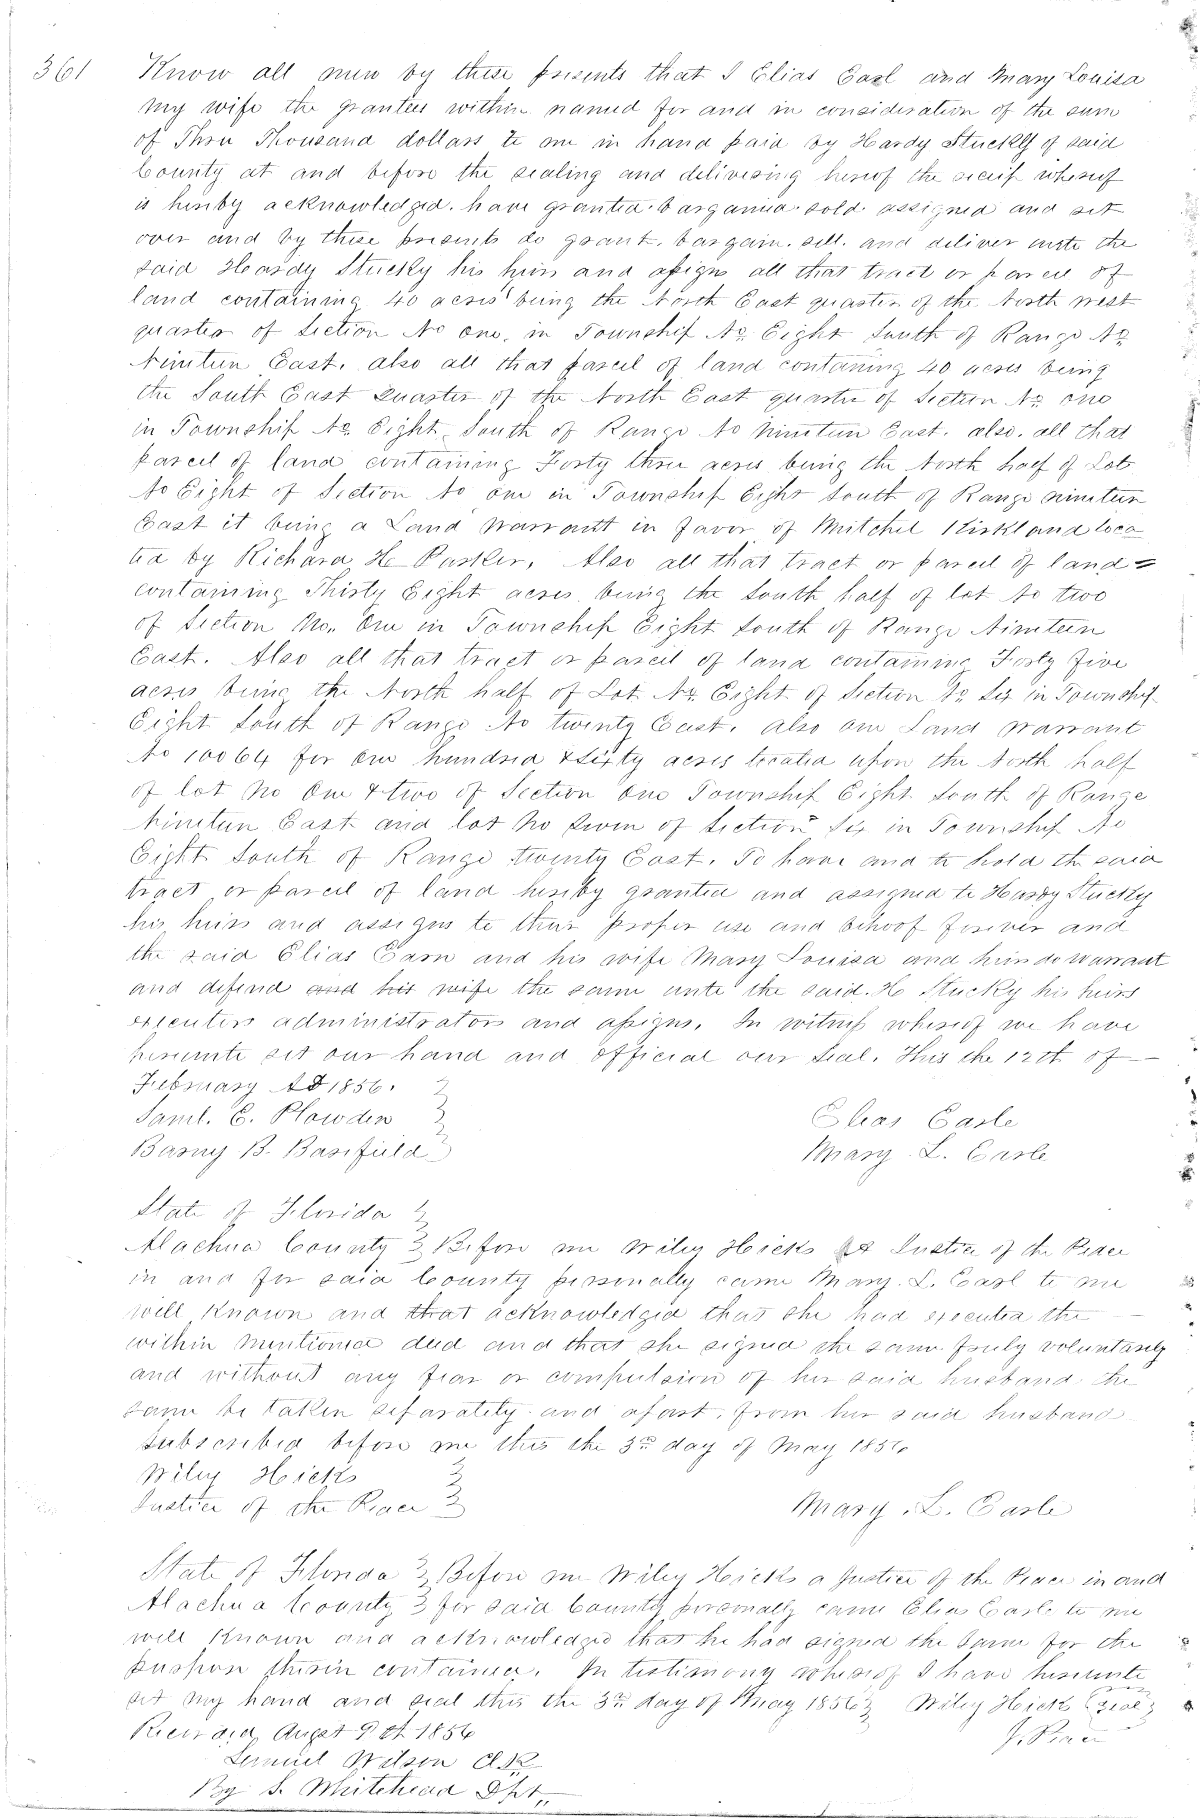 361 Know all men by these presents that I Elias Earl and Mary Louisa
my wife the grantees within named for and in consideration of the sum
of Three Thousand dollars to me in hand paid by Hardy Stuckly of said
County at and before the sealing and delivering hereof the receip whereof
is hereby acknowledged. have granted. bargained. sold. assigned and set
over and by these presents do grant. bargain. sell. and deliver unto the
said Hardy Stucky his heirs and assigns all that tract or parcel of
land containing 40 acres being the North East quarter of the North west
quarter of Section No one. in Township No Eight South of Range No
Nineteen East. also all that parcel of land containing 40 acres being
the South East Quarter of the North East quarter of Section No one
in Township No Eight South of Range No Nineteen East. also. all that
parcel of land containing Forty three acres being the North half of Lot
No Eight of Section No one in Township Eight South of Range nineteen
East it being a Land Warrant in favor of Mitchel Kirkland loca
ted by Richard H Parker. Also all that tract or parcel of land =
containing Thirty Eight acres being the South half of lot No two
of Section No. One in Township Eight South of Range Nineteen
East. Also all that tract or parcel of land containing Forty five
acres being the North half of Lot No Eight of Section No Six in Township
Eight South of Range No twenty East. also one Land Warrant
No 10064 for One hundred & Sixty acres located upon the North half
of lot No One & two of Section One Township Eight South of Range
Nineteen East and lot No Seven of Section Six in Township No
Eight South of Range twenty East. To have and to hold the said
tract or parcel of land hereby granted and assigned to Hardy Stucky
his heirs and assigns to their proper use and behoof forever and
the said Elias Earn and his wife Mary Louisa and heirs do warrant
and defend and his wife the same unto the said. H Stucky his heirs
executors administrators and assigns. In witness whereof we have
hereunto set our hand and official our Seal. This the 12th of
February AD 1856.
Saml. E. Plowden
Elias Earle
Barny B. Barfield
Mary L. Earle
State of Florida
Alachua County Before me Wiley Hicks a Justice of the Peace
in and for said County personally came Mary. L. Earl to me
well Known and that acknowledged that she had executed the
within mentioned deed and that she signed the same freely voluntarily
and without any fear or compulsion of her said husband the
same be taken separately and apart. from her said husband
Subscribed before me this the 3rd day of May 1856
Wiley Hicks
Justice of the Peace
Mary. L. Earle
State of Florida Before me Wiley Hicks a Justice of the Peace in and
Alachua County for said County personally came Elias Earle to me
well Known and acknowledged that he had signed the same for the
purpose therein contained. In testimony whereof I have hereunto
set my hand and seal this the 3rd day of May 1856 Wiley Hicks Seal
Recorded Augst 9th 1856 J. Peace
Lemuel Wilson Clk
By S. Whitehead Dpt